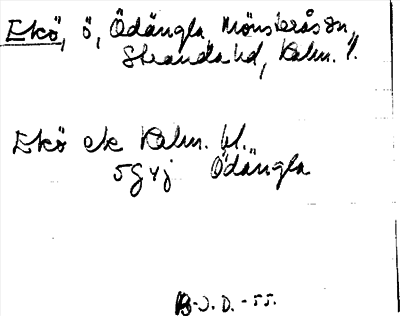 Ekö, ö, Ödängla, Mönsterås sn,
Stranda hd, Kalm. l.
Ekö ek Kalm. bl.
5g4j Ödängla
B-J.D.-55.